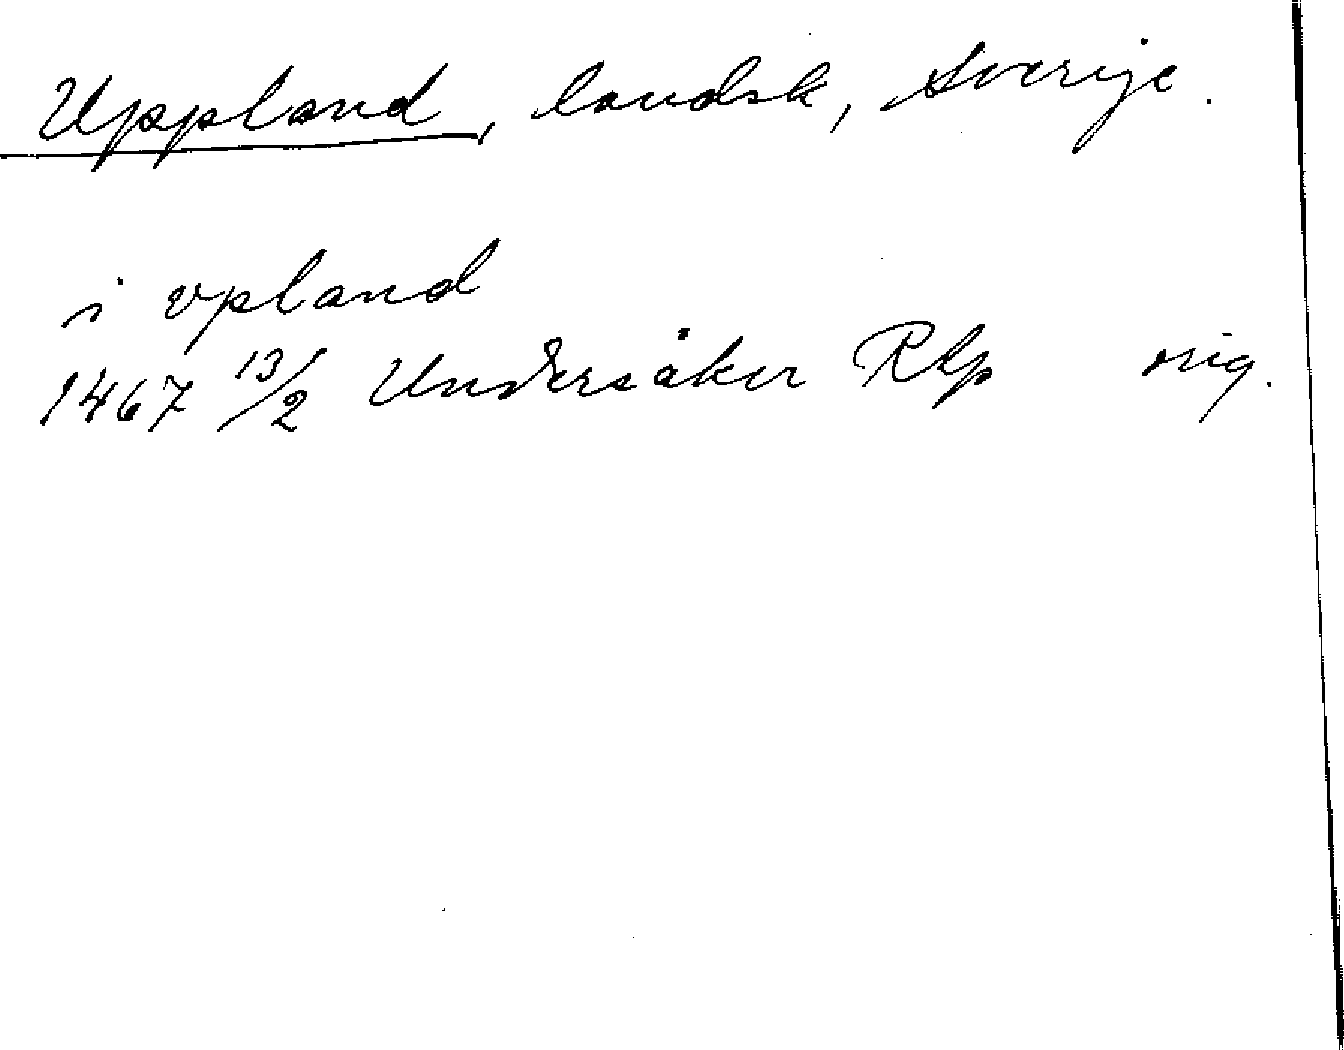 Uppland, landsk, Sverige.
i vpland
1467 13/2 Undersåker RAp orig.